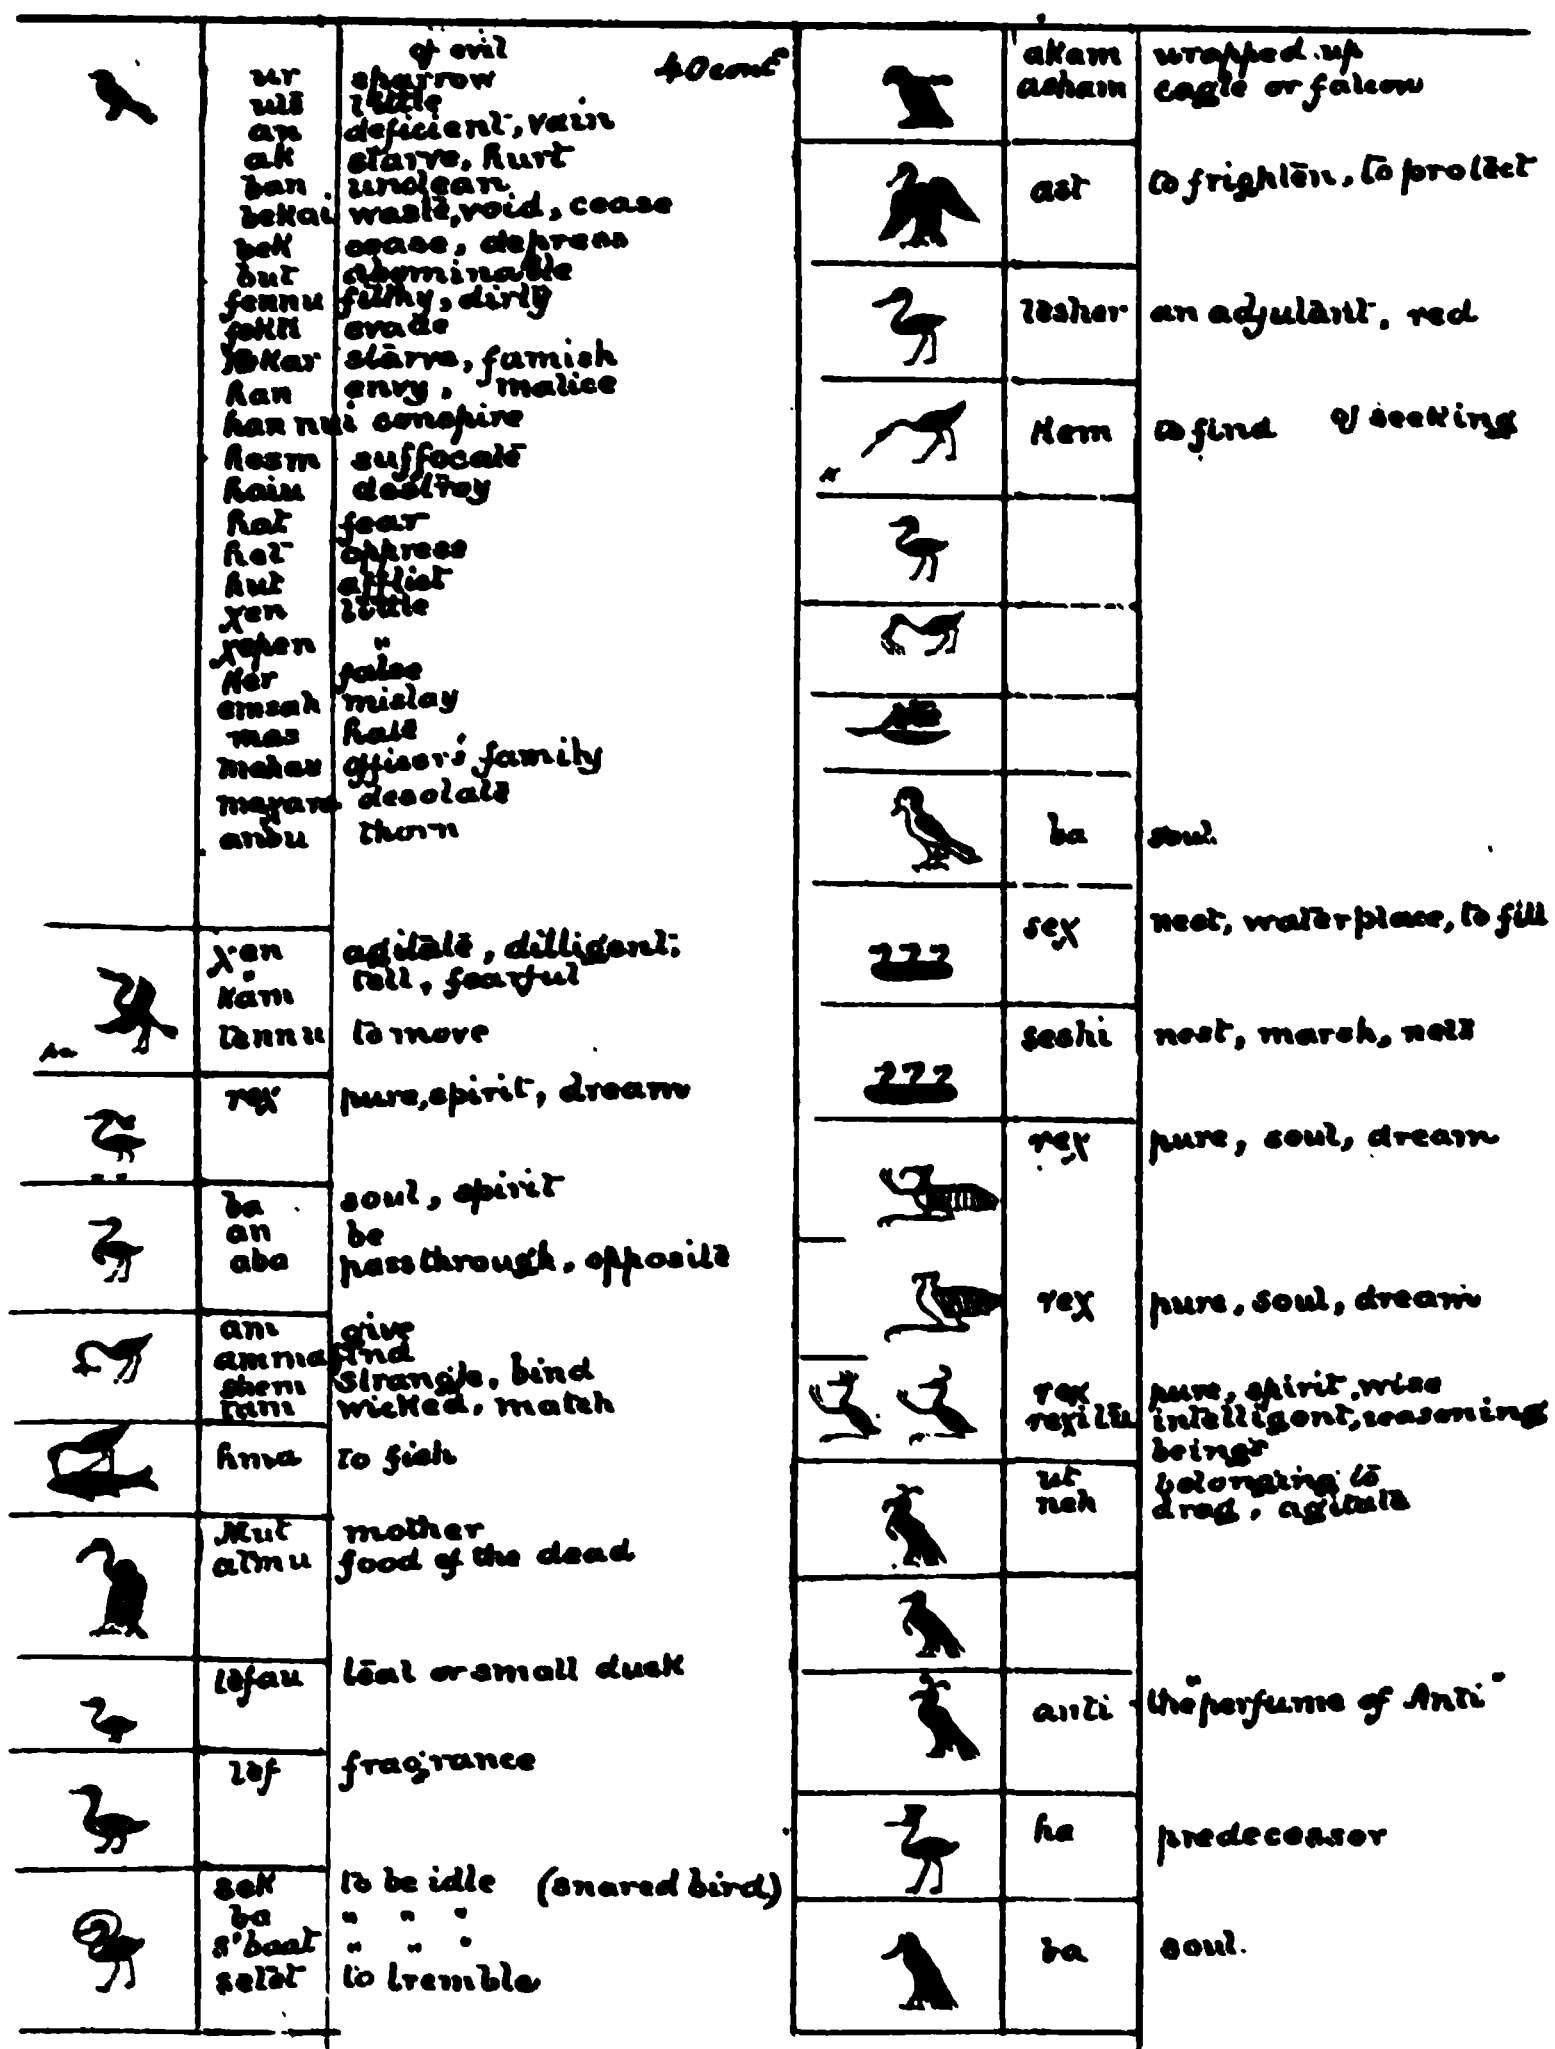 of evil
40 cont
ur sparrow
little
an deficient, vain
ak starve, hurt
ban unclean
bekai waste, void, cease
bek cease, depress
but abominable
fennu filthy, dirty
evade
starve, famish
han envy, malice
han nui conspire
hesm suffocate
haiu destroy
hat fear
het oppress
hut afflict
χen little
χepen "
Ker false
emsah mislay
mas hate
officers' family
desolate
anbu thorn
χen agitate, dilligent,
tell, fearful
kam
tennu to move
pa
reχ pure, spirit, dream
ba soul, spirit
an be
aba pass through, opposite
am give
amma find
shem strangle, bind
tam wicked, match
hma to fish
Mut mother
atmu food of the dead
tefau teal or small duck
tef fragrance
sek to be idle (snared bird)
ba " " "
s'baat " " "
setet to tremble
akam wrapped up
asham eagle or falcon
ast to frighten, to protect
tesher an adjutant, red
Kem to find of seeking
K
ba soul
seχ nest, water place, to fill
seshi nest, marsh, nets
reχ pure, soul, dream
reχ pure, soul, dream
reχ pure, spirit, wise
reχitu intelligent, reasoning
beings
ut belonging to
neh drag, agitate
anti the "perfume of Anti"
ha predecessor
ba soul.